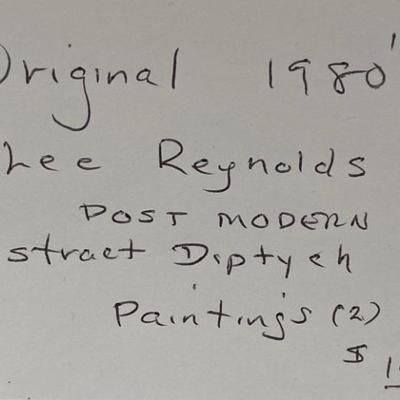 Original 1980'
Lee Reynolds
POST MODERN
stract Diptych
Paintings (2)
$ 1